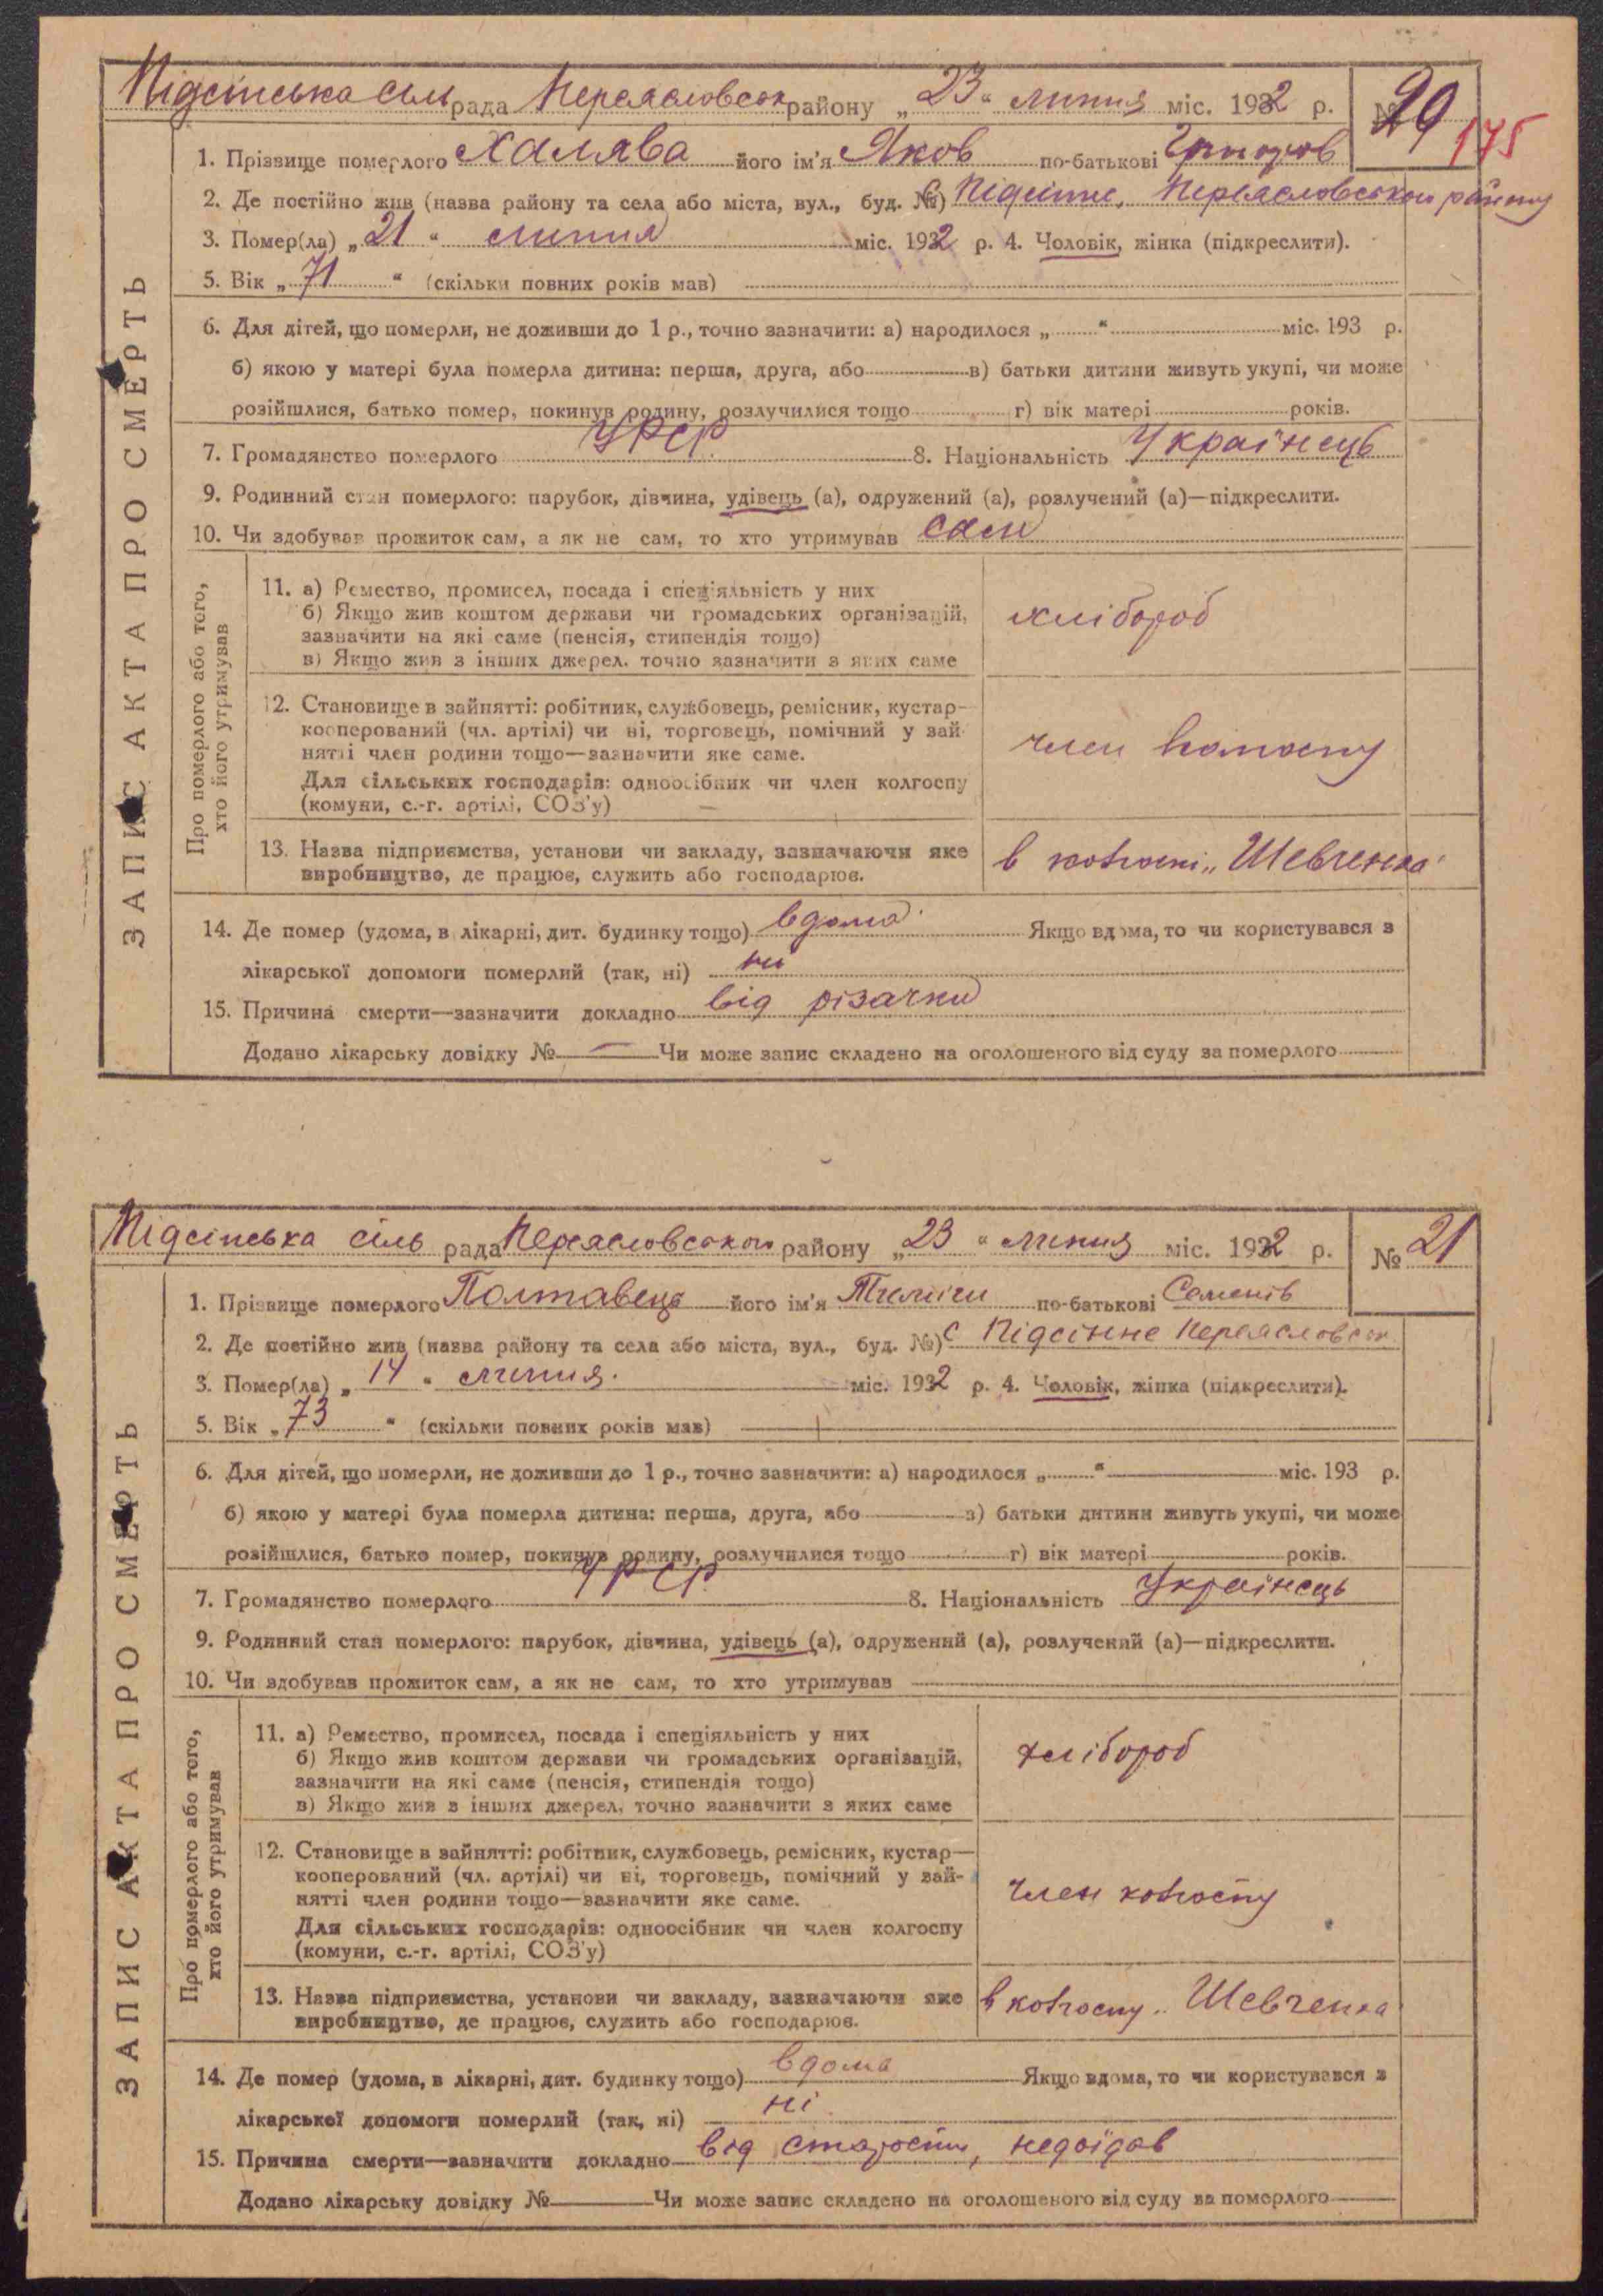 Підсінська сіль рада Переяславськ району „23“ липня міс. 1932 р. № 20
175
1. Прізвище померлого Халява його ім'я Яков по-батькові Григоров
2. Де постійно жив (назва району та села або міста, вул., буд. №) с Підсінне, Переясловського району
3. Помер(ла) „21“ липня міс. 1932 р. 4. Чоловік, жінка (підкреслити).
5. Вік „71“ (скільки повних років мав)
6. Для дітей, що померли, не доживши до 1 р., точно зазначити: а) народилося „ “ міс. 193 р.
б) якою у матері була померла дитина: перша, друга, або в) батьки дитини живуть укупі, чи може
розійшлися, батько помер, покинув родину, розлучилися тощо г) вік матері років.
7. Громадянство померлого УРСР 8. Національність Українець
9. Родинний стан померлого: парубок, дівчина, удівець (а), одружений (а), розлучений (а)—підкреслити.
10. Чи здобував прожиток сам, а як не сам, то хто утримував сам
ЗАПИС АКТА ПРО СМЕРТЬ
Про померлого або того,
хто його утримував
11. а) Ремество, промисел, посада і спеціяльність у них
б) Якщо жив коштом держави чи громадських організацій,
зазначити на які саме (пенсія, стипендія тощо)
в) Якщо жив з інших джерел, точно зазначити з яких саме
хлібороб
12. Становище в зайнятті: робітник, службовець, ремісник, кустар—
кооперований (чл. артілі) чи ні, торговець, помічний у зай-
нятті член родини тощо—зазначити яке саме.
Для сільських господарів: одноосібник чи член колгоспу
(комуни, с.-г. артілі, СОЗ'у)
член колгоспу
13. Назва підприємства, установи чи закладу, зазначаючи яке
виробництво, де працює, служить або господарює.
в колгоспі „Шевченка“
14. Де помер (удома, в лікарні, дит. будинку тощо) вдома Якщо вдома, то чи користувався з
лікарської допомоги померлий (так, ні) ни
15. Причина смерти—зазначити докладно від різачки
Додано лікарську довідку № — Чи може запис складено на оголошеного від суду за померлого
Підсінська сіль рада Переясловського району „23“ липня міс. 1932 р. № 21
1. Прізвище померлого Полтавець його ім'я по-батькові Семенів
2. Де постійно жив (назва району та села або міста, вул., буд. №) с Підсінне Переясловськ
3. Помер(ла) „14“ липня. міс. 1932 р. 4. Чоловік, жінка (підкреслити).
5. Вік „73“ (скільки повних років мав)
6. Для дітей, що померли, не доживши до 1 р., точно зазначити: а) народилося „ “ міс. 193 р.
б) якою у матері була померла дитина: перша, друга, або в) батьки дитини живуть укупі, чи може
розійшлися, батько помер, покинув родину, розлучилися тощо г) вік матері років.
7. Громадянство померлого УРСР 8. Національність Українець
9. Родинний стан померлого: парубок, дівчина, удівець (а), одружений (а), розлучений (а)—підкреслити.
10. Чи здобував прожиток сам, а як не сам, то хто утримував
ЗАПИС АКТА ПРО СМЕРТЬ
Про померлого або того,
хто його утримував
11. а) Ремество, промисел, посада і спеціяльність у них
б) Якщо жив коштом держави чи громадських організацій,
зазначити на які саме (пенсія, стипендія тощо)
в) Якщо жив з інших джерел, точно зазначити з яких саме
хлібороб
12. Становище в зайнятті: робітник, службовець, ремісник, кустар—
кооперований (чл. артілі) чи ні, торговець, помічний у зай-
нятті член родини тощо—зазначити яке саме.
Для сільських господарів: одноосібник чи член колгоспу
(комуни, с.-г. артілі, СОЗ'у)
член колгоспу
13. Назва підприємства, установи чи закладу, зазначаючи яке
виробництво, де працює, служить або господарює.
в колгоспу „ Шевченка
14. Де помер (удома, в лікарні, дит. будинку тощо) вдома Якщо вдома, то чи користувався з
лікарської допомоги померлий (так, ні) ні
15. Причина смерти—зазначити докладно від старости, недоїдав
Додано лікарську довідку № Чи може запис складено на оголошеного від суду за померлого